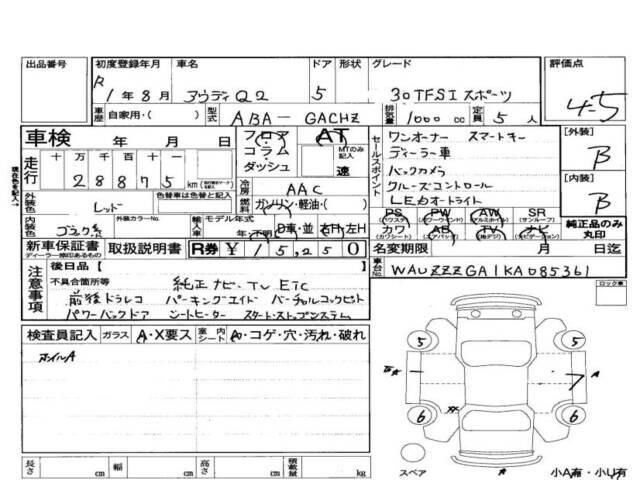 出品番号 初度登録年月 車名 ドア 形状 グレード 評価点
R 1年 8月 アウディQ2 5 30TFSI スポーツ 4-5
車歴 自家用・( ) 型式 ABA-GACHZ 排気量 1000 cc 定員 5人
車検 年 月 日 フロア コラム ダッシュ AT MTのみ記入 速
走行 十万 万 千 百 十 28875 km
セールスポイント ワンオーナー スマートキー
ディーラー車
バックカメラ
クルーズコントロール
LEDオートライト
[外装] B
[内装] B
外装色 レッド 色替車は色替と記入 冷房 AAC
燃料 ガソリン・軽油・( )
内装色 ブラック系 外装カラーNo. 輸入車 モデル年式 年・不明 D車・並 右H・左H
PS (パワステ) PW (パワーウインド) AW (アルミホイル) SR (サンルーフ)
カワ (カワシート) AB (エアバッグ) TV (地デジ) ナビ 純正品のみ丸印
新車保証書 ディーラー捺印あるもの 取扱説明書 R券 ¥ 15,250
名変期限 月 日迄
車台No. WAUZZZGA1KA085361
現在色を記入→
注意事項 後日品[ ]
不具合箇所等 純正ナビ・TV ETC
前後ドラレコ パーキングエイド バーチャルコックピット
パワーバックドア シートヒーター スタート・ストップシステム
ロック車
検査員記入 ガラス A・X要ス 室内シート A・コゲ・穴・汚れ・破れ
ホイルA
5 5
A
6 6
スペア A 小A有・小U有
長さ cm 幅 cm 高さ cm 積載量 kg